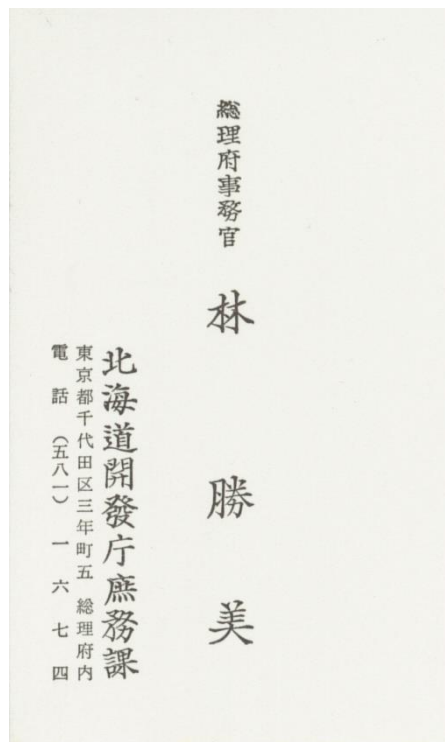 総理府事務官
林 勝美
北海道開發庁庶務課
東京都千代田区三年町五 総理府内
電話(五八一)一六七四